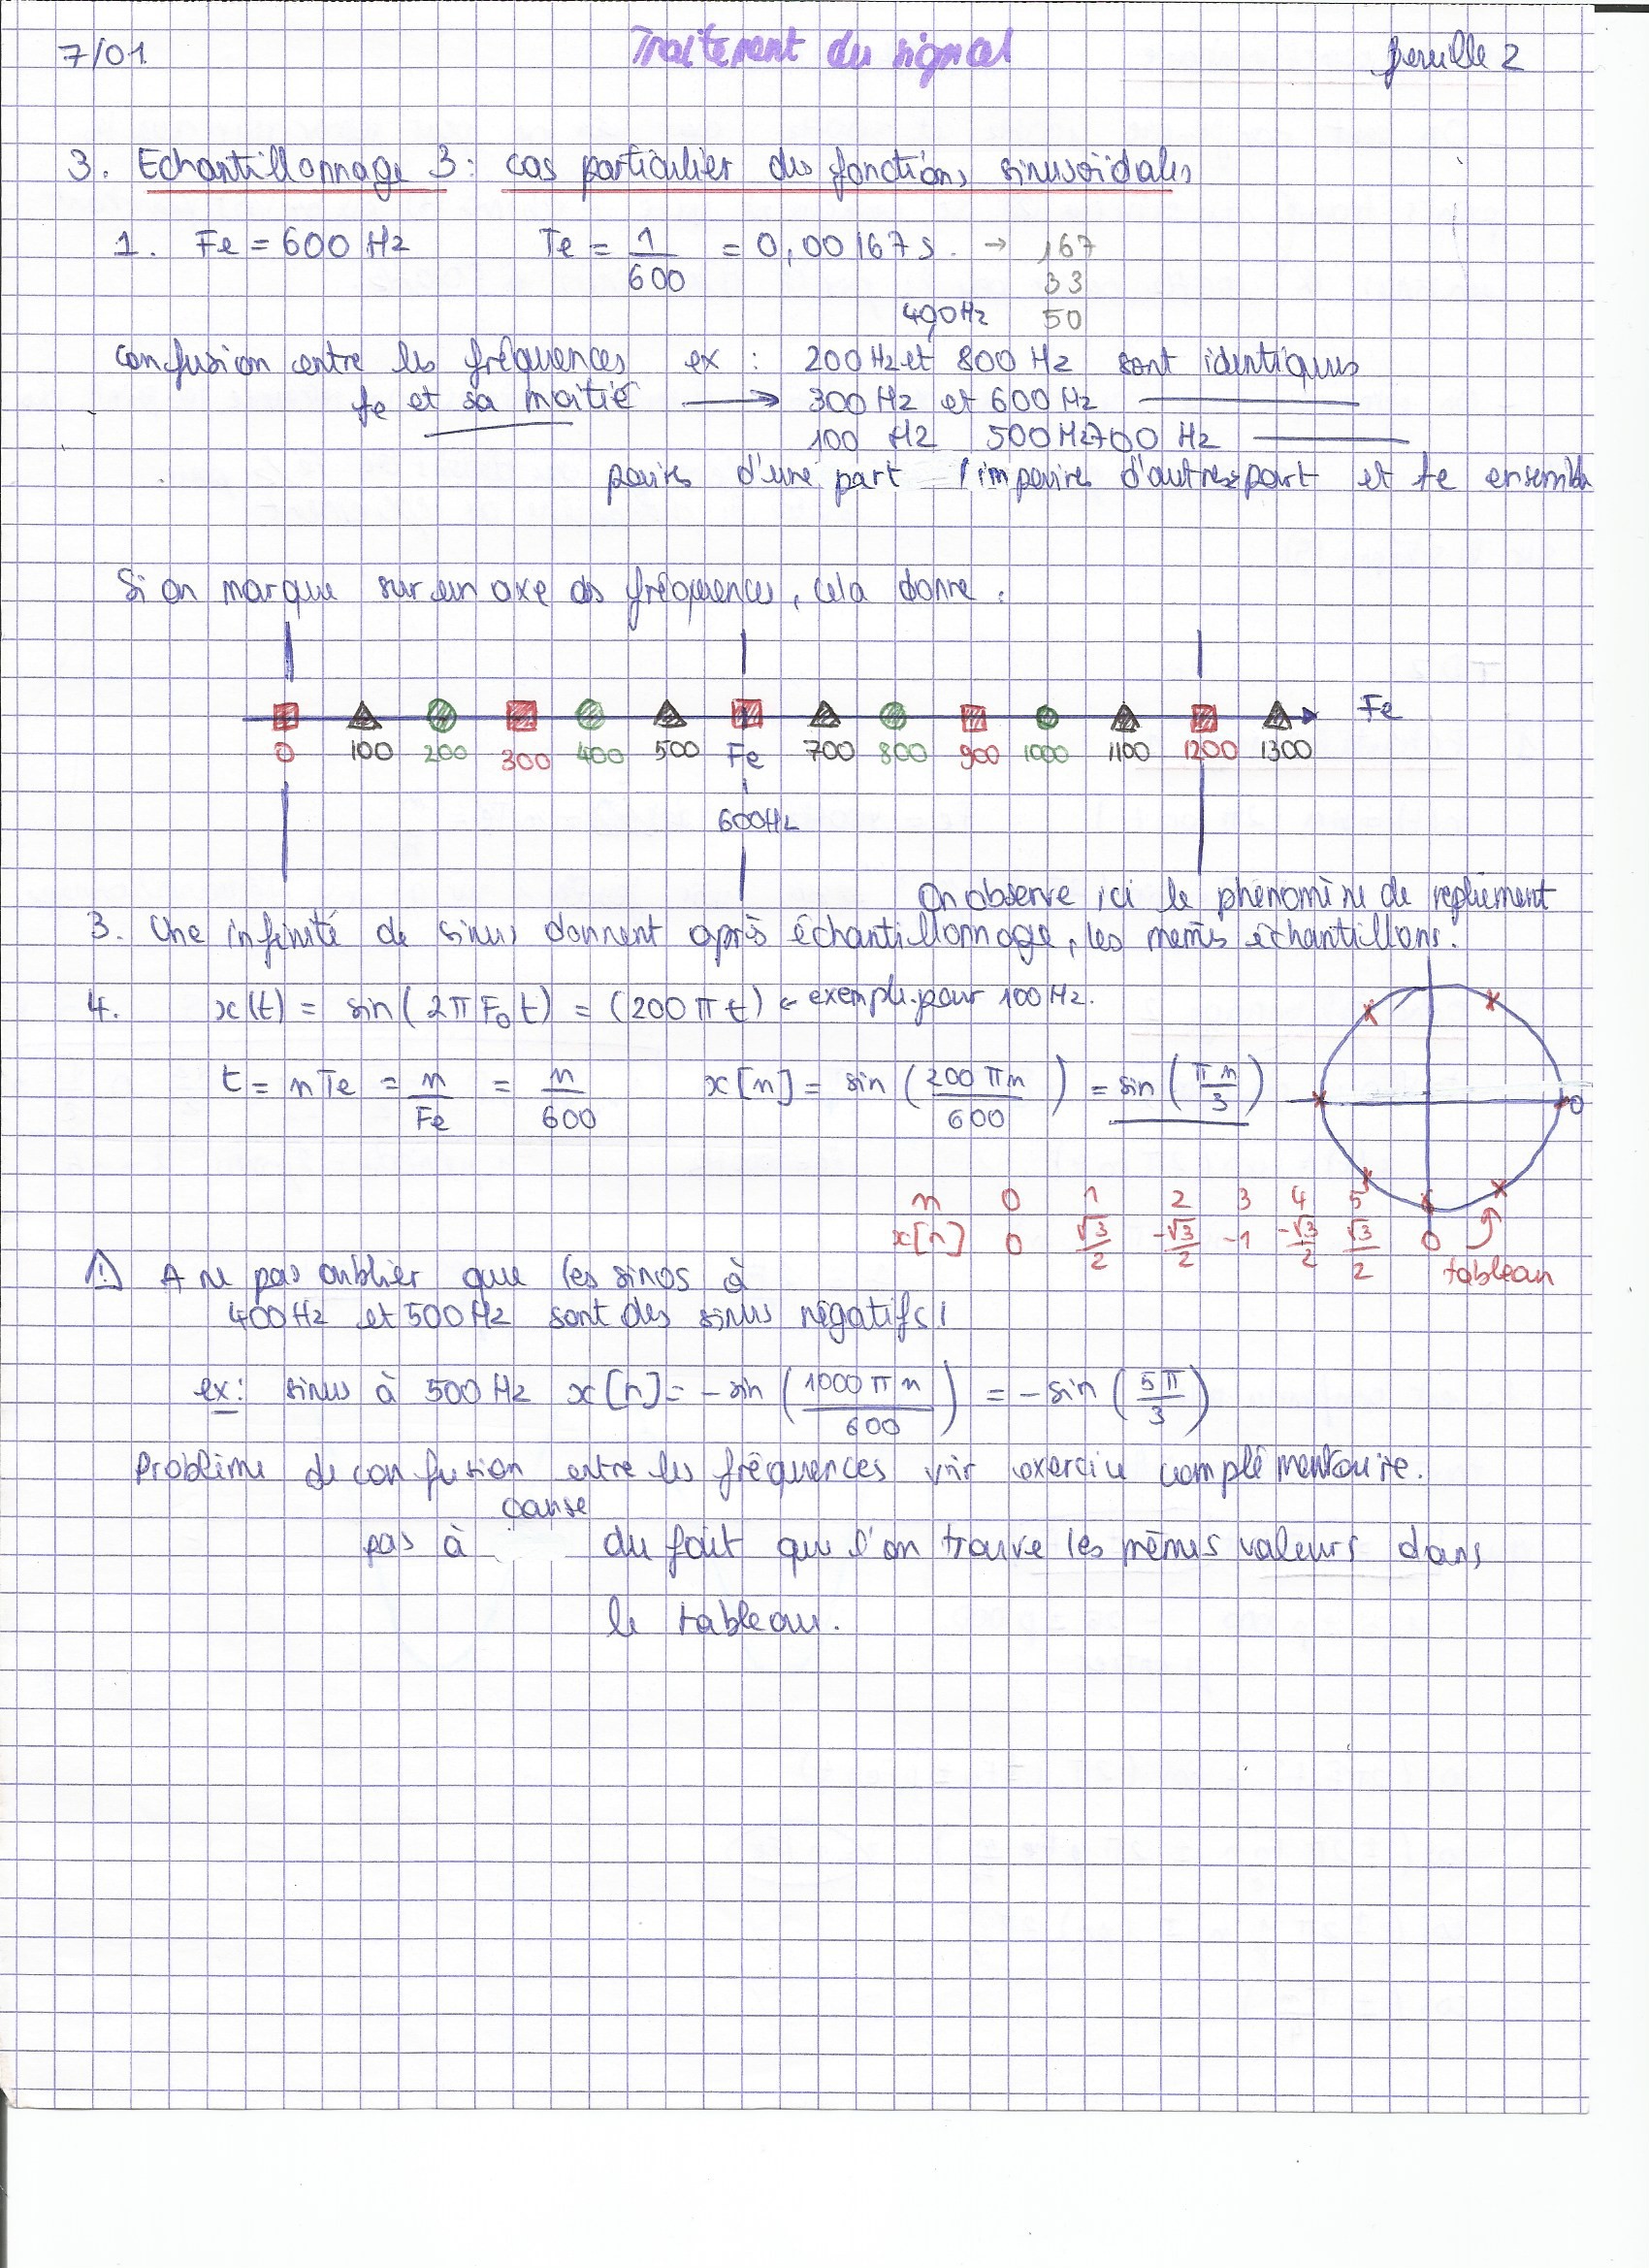 7/01 Traitement du signal feuille 2
3. Echantillonnage 3 : cas particulier des fonctions sinusoïdales
1. Fe = 600 Hz Te = 1/600 = 0,00167 s. → 167
33
400Hz 50
Confusion entre les fréquences ex : 200 Hz et 800 Hz sont identiques
fe et sa moitié → 300 Hz et 600 Hz ———
100 Hz 500Hz 700 Hz ———
paires d'une part / impaires d'autres part et fe ensemble
Si on marque sur un axe des fréquences, cela donne :
Fe
0 100 200 300 400 500 Fe 700 800 900 1000 1100 1200 1300
600Hz
On observe ici le phénomène de repliement
3. Une infinité de sinus donnent après échantillonnage, les mêmes échantillons.
4. x(t) = sin(2πF₀t) = (200πt) ← exemple pour 100 Hz.
t = nTe = n/Fe = n/600 x[n] = sin(200πn/600) = sin(πn/3) 0
n 0 1 2 3 4 5
x[n] 0 √3/2 -√3/2 -1 -√3/2 √3/2 0 tableau
⚠ A ne pas oublier que les sinus à
400Hz et 500Hz sont des sinus négatifs !
ex : sinus à 500 Hz x[n] = -sin(1000πn/600) = -sin(5π/3)
Problème de confusion entre les fréquences voir exercice complémentaire.
cause
pas à du fait que l'on trouve les mêmes valeurs dans
le tableau.